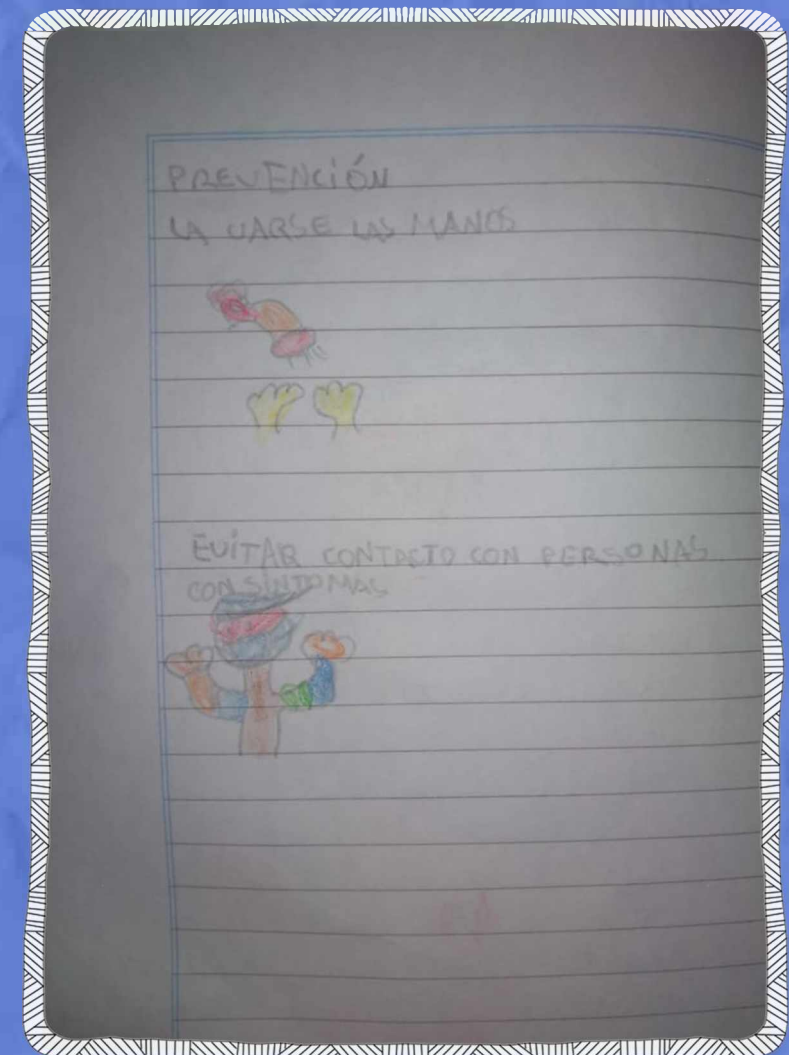 PREVENCIÓN
LA VARSE LAS MANOS
EVITAR CONTACTO CON PERSONAS
CON SINTOMAS